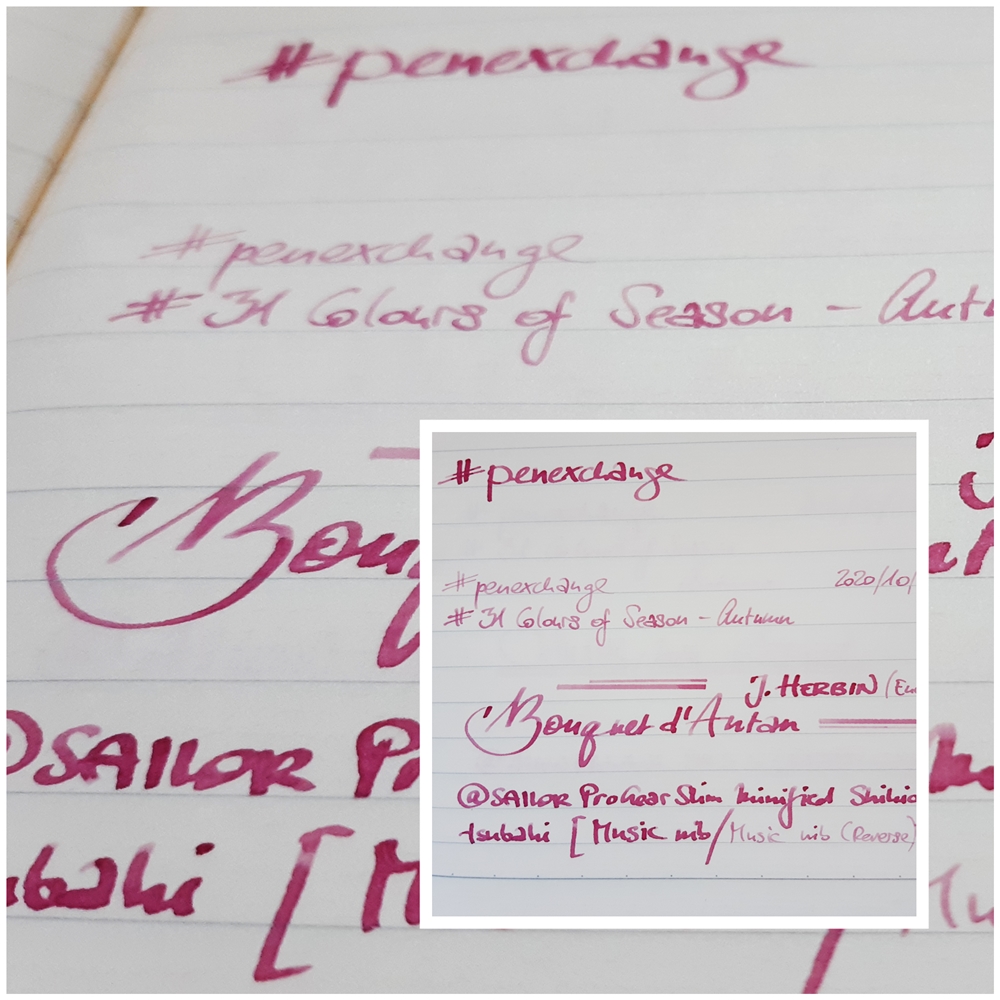 #penexchange
#penexchange
# 31 Colours of Season - Autu
Bouq
@SAILOR Pr
ubaki [M
#penexchange
#penexchange 2020/10/
# 31 Colours of Season - Autumn
J. HERBIN (
Bouquet d'Antan
@SAILOR ProGear Slim Minified
tsubaki [Music nib/Music nib (Reverse)